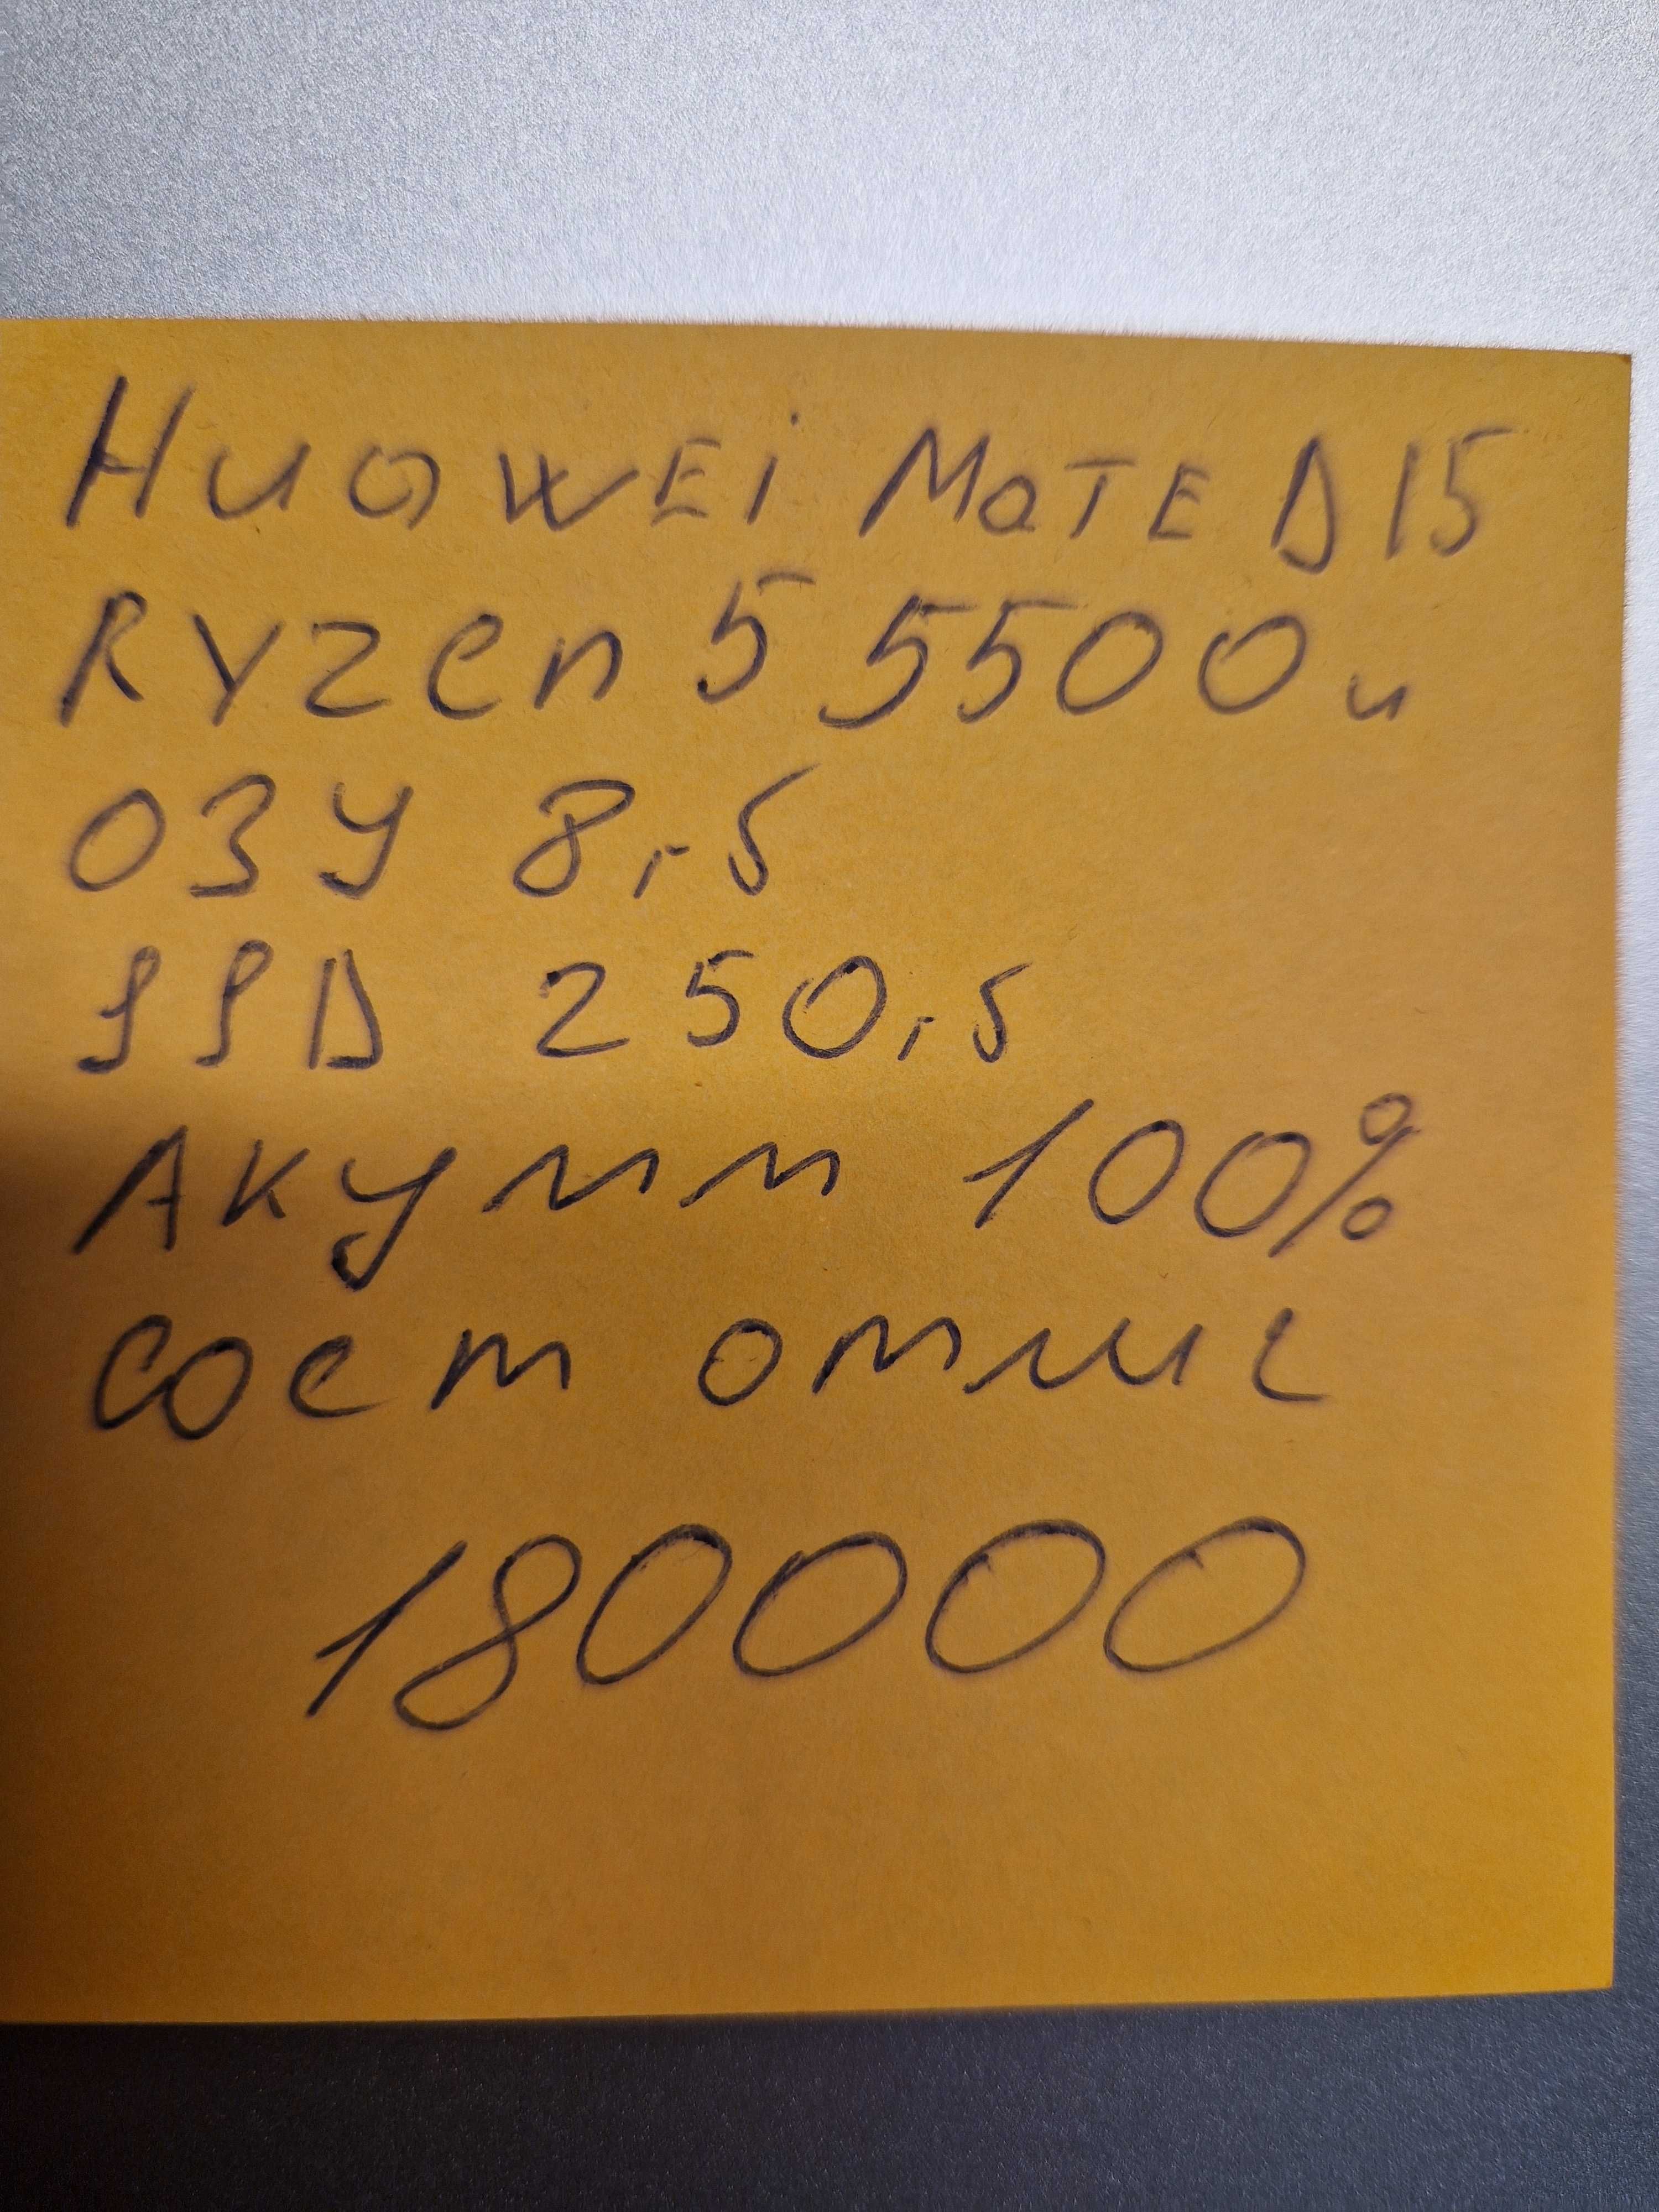 Huawei Mate D15
Ryzen 5 5500u
ОЗУ 8гб
SSD 250гб
Акумм 100%
сост отлич
180000